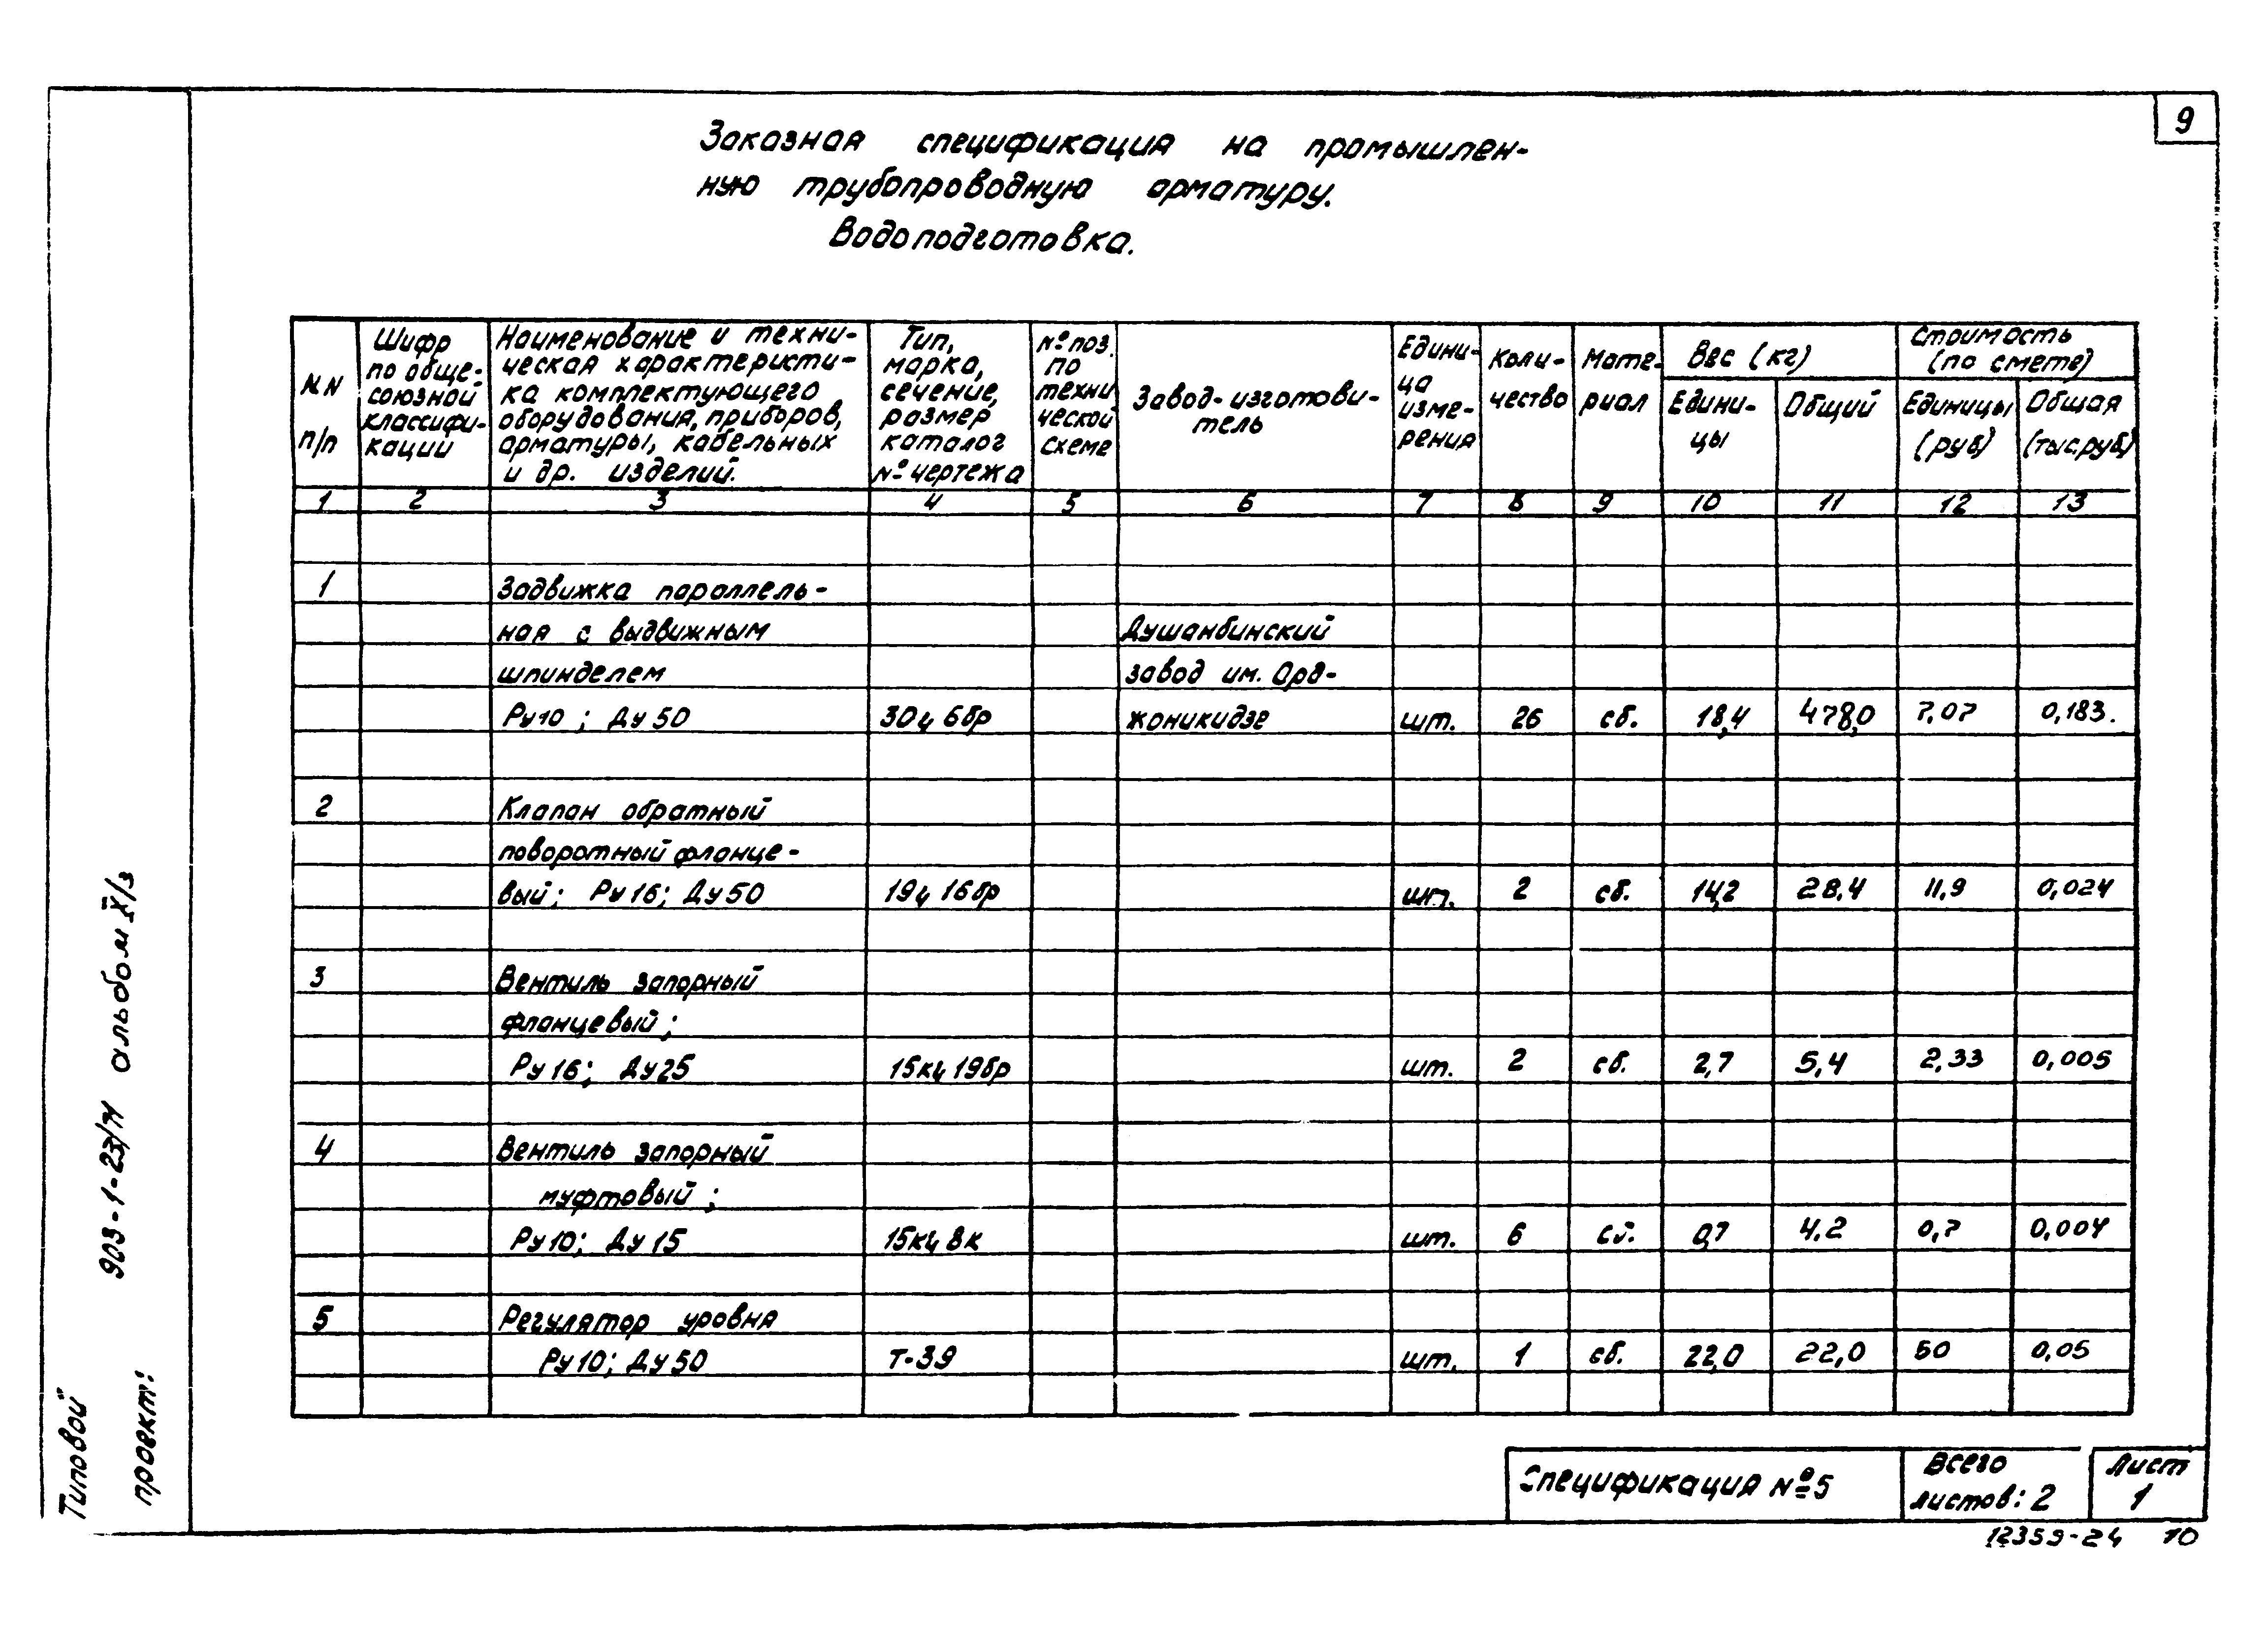 9
Заказная спецификация на промышлен-
ную трубопроводную арматуру.
Водоподготовка.
NN п/п | Шифр по обще-союзной классифи-кации | Наименование и техни-ческая характеристи-ка комплектующего оборудования, приборов, арматуры, кабельных и др. изделий. | Тип, марка, сечение, размер каталог № чертежа | № поз. по техни ческой схеме | Завод-изготови-тель | Едини-ца изме-рения | Коли-чество | Мате-риал | Вес (кг) Едини-цы | Общий | Стоимость (по смете) Единицы (руб) | Общая (тыс.руб)
1 2 3 4 5 6 7 8 9 10 11 12 13
1 Задвижка параллель-
ная с выдвижным Душанбинский
шпинделем завод им. Орд-
Ру10; Ду50 30ч6бр жоникидзе шт. 26 сб. 18,4 478,0 7,07 0,183.
2 Клапан обратный
поворотный фланце-
вый; Ру16; Ду50 19ч16бр шт. 2 сб. 14,2 28,4 11,9 0,024
3 Вентиль запорный
фланцевый;
Ру16; Ду25 15кч19бр шт. 2 сб. 2,7 5,4 2,33 0,005
4 Вентиль запорный
муфтовый;
Ру10; Ду15 15кч8к шт. 6 сб. 0,7 4,2 0,7 0,004
5 Регулятор уровня
Ру10; Ду50 Т-39 шт. 1 сб. 22,0 22,0 50 0,05
Спецификация №5
Всего
листов: 2
Лист
1
12359-24 10
Типовой
проект:
903-1-23/71 альбом X/3